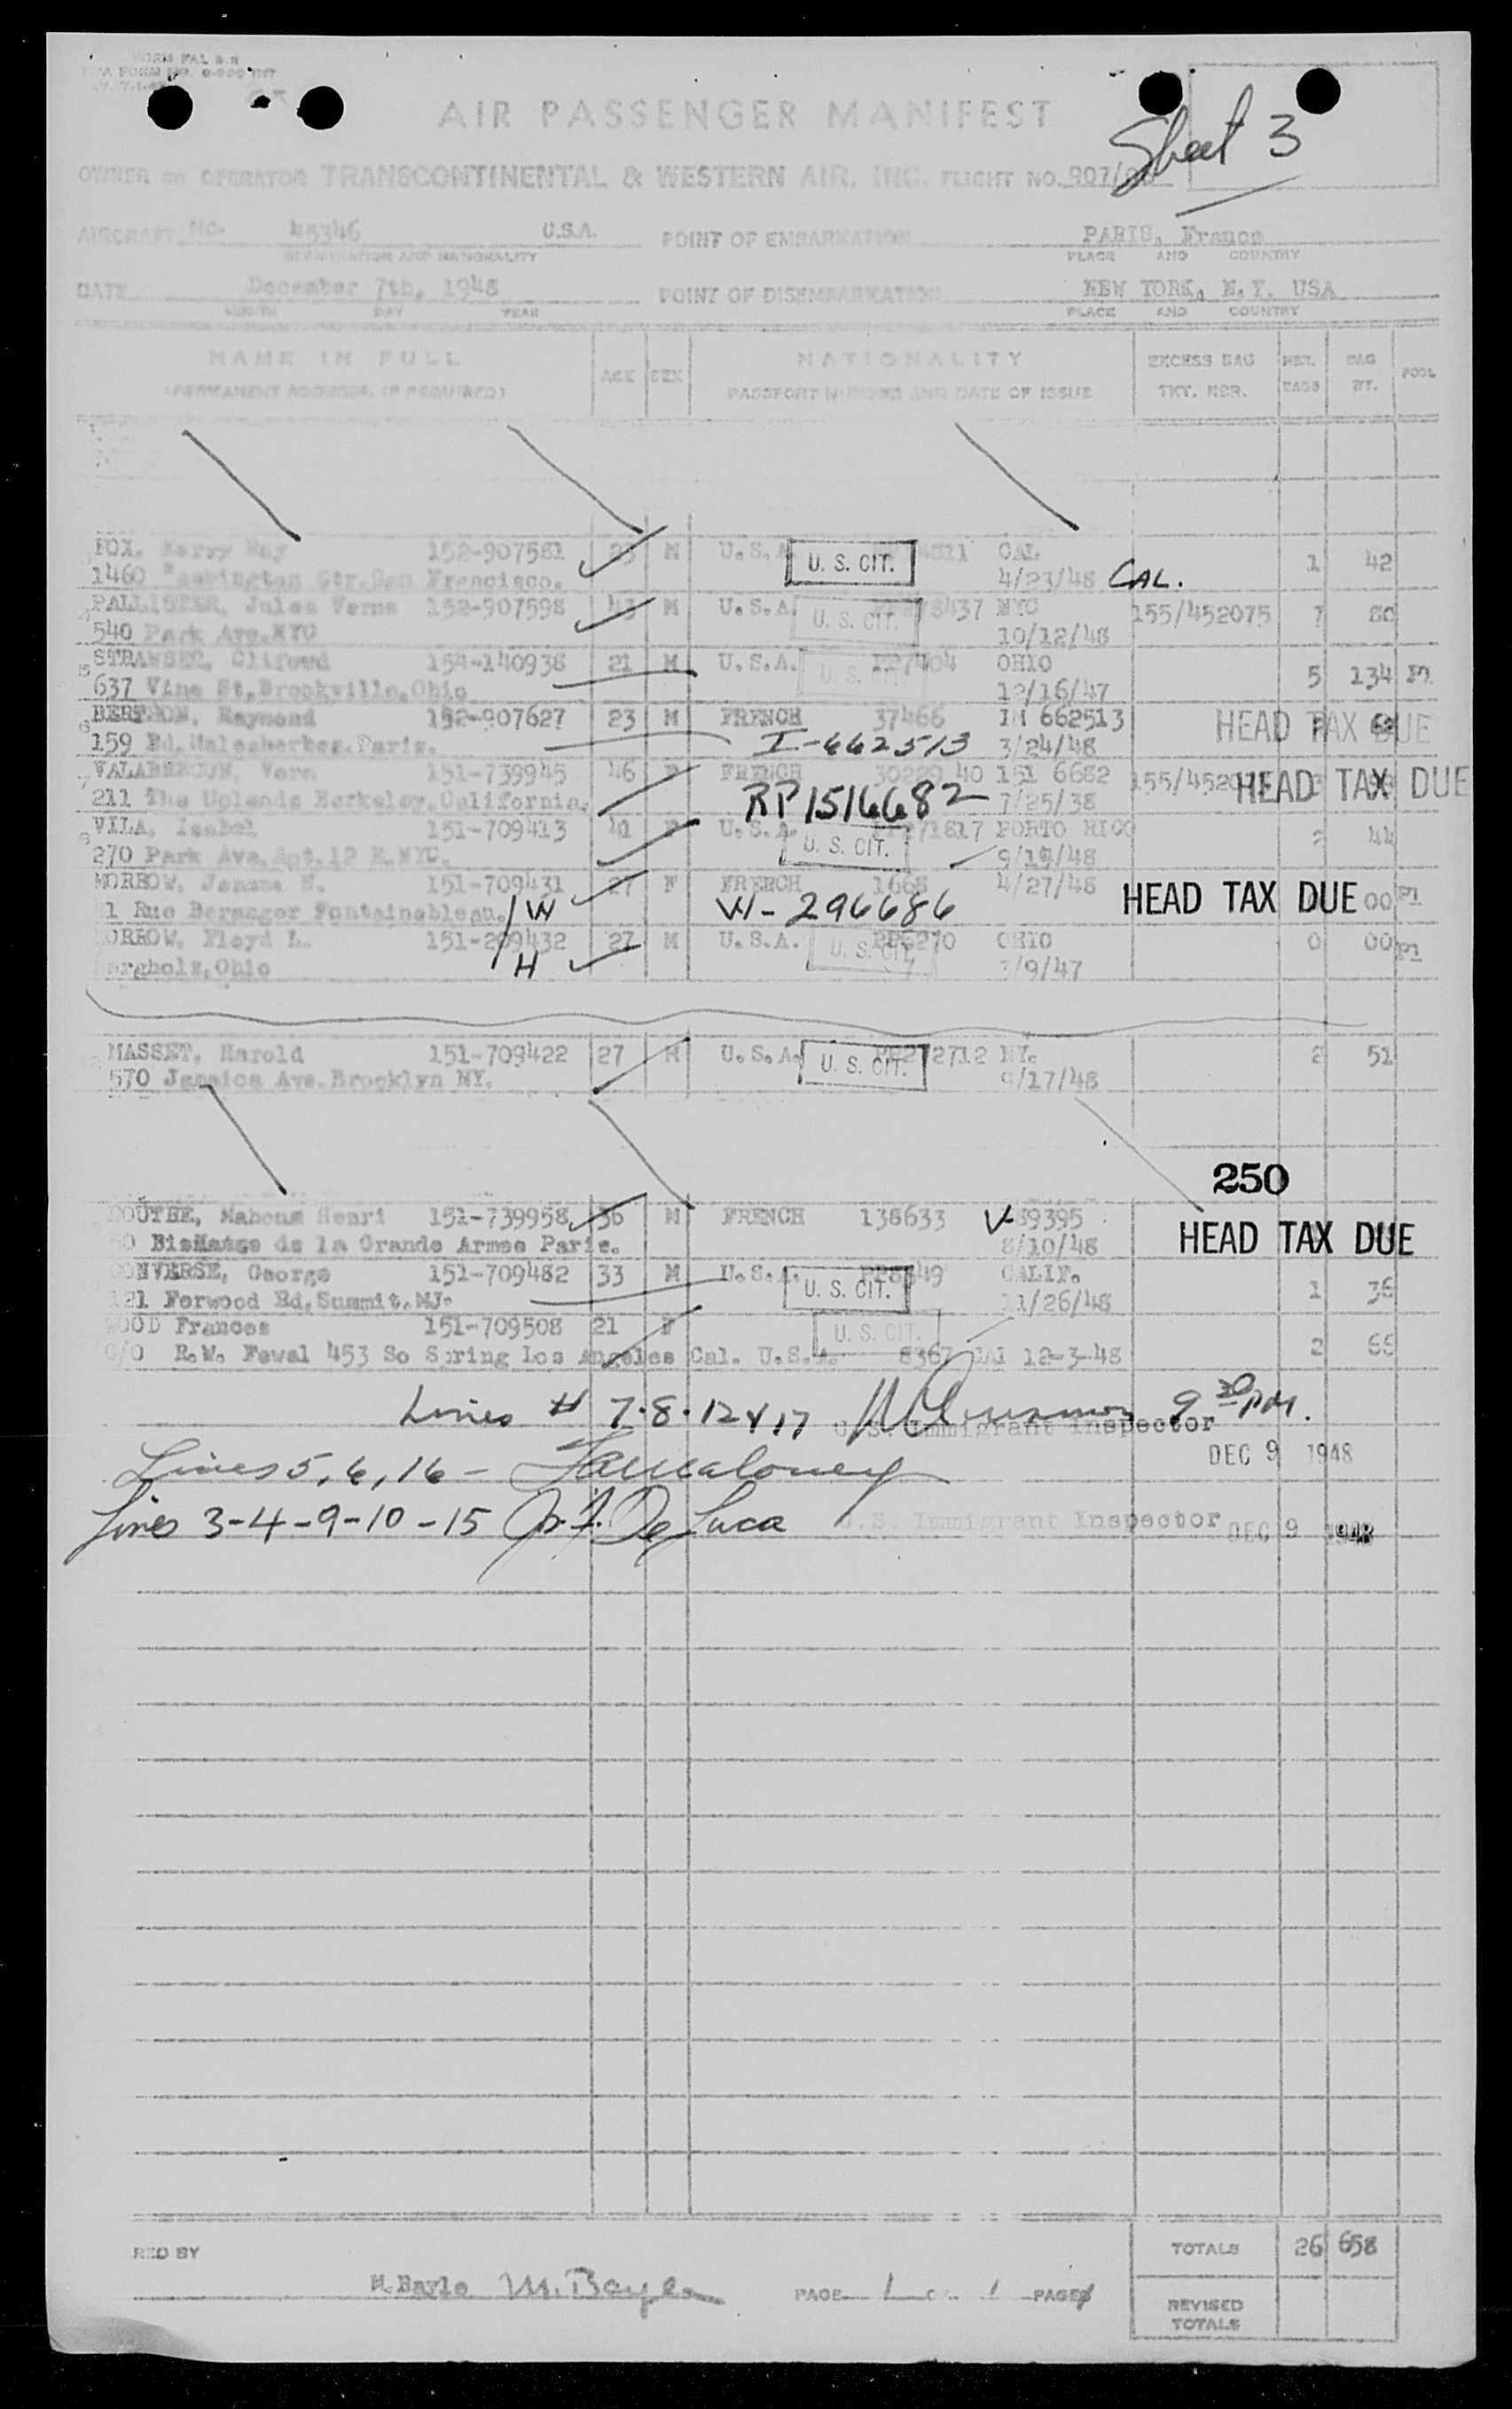 FORM PAL
AIR PASSENGER MANIFEST
Sheet 3
OWNER OR OPERATOR TRANSCONTINENTAL & WESTERN AIR, INC. FLIGHT NO. 907/
AIRCRAFT NC- 45346 U.S.A. POINT OF EMBARKATION PARIS, France
REGISTRATION AND NATIONALITY PLACE AND COUNTRY
DATE December 7th, 1948 POINT OF DISEMBARKATION NEW YORK, N.Y. USA
MONTH DAY YEAR PLACE AND COUNTRY
NAME IN FULL AGE SEX NATIONALITY EXCESS BAG NBR. BAG POOL
(PERMANENT ADDRESS, IF REQUIRED) PASSPORT NUMBER AND DATE OF ISSUE TKT. NBR. BAGS WT.
FOX, Harry Way 152-907581 23 M U.S.A. U. S. CIT. CAL 1 42
1460 Washington Str. San Francisco. 4/23/48 CAL.
PALLISTER, Jules Verne 152-907598 43 M U.S.A. U. S. CIT. 78437 NYC 155/452075 7 80
540 Park Ave. NYC 10/12/48
STRAWSER, Clifford 154-140938 21 M U.S.A. U. S. CIT. PP7404 OHIO 5 134
637 Vine St, Brookville, Ohio 12/16/47
BERTHON, Raymond 152-907627 23 M FRENCH 37466 IM 662513 HEAD TAX DUE
159 Bd. Malesherbes. Paris. I-662513 3/24/48
Vera 151-739945 46 F FRENCH 40 151 6682 HEAD TAX DUE
211 The Uplands Berkeley, California. RP 1516682 7/25/38
VILA, Isabel 151-709413 41 F U.S.A. U. S. CIT. 271817 PORTO RICO 2 44
270 Park Ave. Apt. 12 E. NYC.
MORROW, Jeanne N. 151-709431 27 F FRENCH 1668 4/27/48 HEAD TAX DUE 00
1 Rue Beranger Fontainebleau. W W-296686
ORROW, Floyd L. 151-209432 27 M U.S.A. U. S. CIT. PP6270 OHIO 0 00
ergholz, Ohio H 3/9/47
MASSET, Harold 151-709422 27 M U.S.A. U. S. CIT. PP272712 NY. 2 51
570 Jamaica Ave. Brooklyn NY. 9/17/48
250
OUTHE, Mahoua Henri 151-739958 36 M FRENCH 138633 V-89395 HEAD TAX DUE
de la Grande Armee Paris. 8/10/48
CONVERSE, George 151-709482 33 M U.S.A. U. S. CIT. CALIF. 1 36
121 Forwood Rd, Summit, NJ. 11/26/48
WOOD Frances 151-709508 21 F U. S. CIT.
C/O R.W. Fewal 453 So Spring Los Angeles Cal. U.S.A. 8367 CAL 12-3-48 2 66
Lines # 7.8.12 & 17 9 30 PM.
U.S. Immigrant Inspector
DEC 9 1948
Lines 5, 6, 16 -
Lines 3-4-9-10-15 De Luca U.S. Immigrant Inspector DEC 9 1948
RED BY TOTALS 26 658
M. Bayle M. Bayle PAGE 1 OF 1 PAGES
REVISED
TOTALS